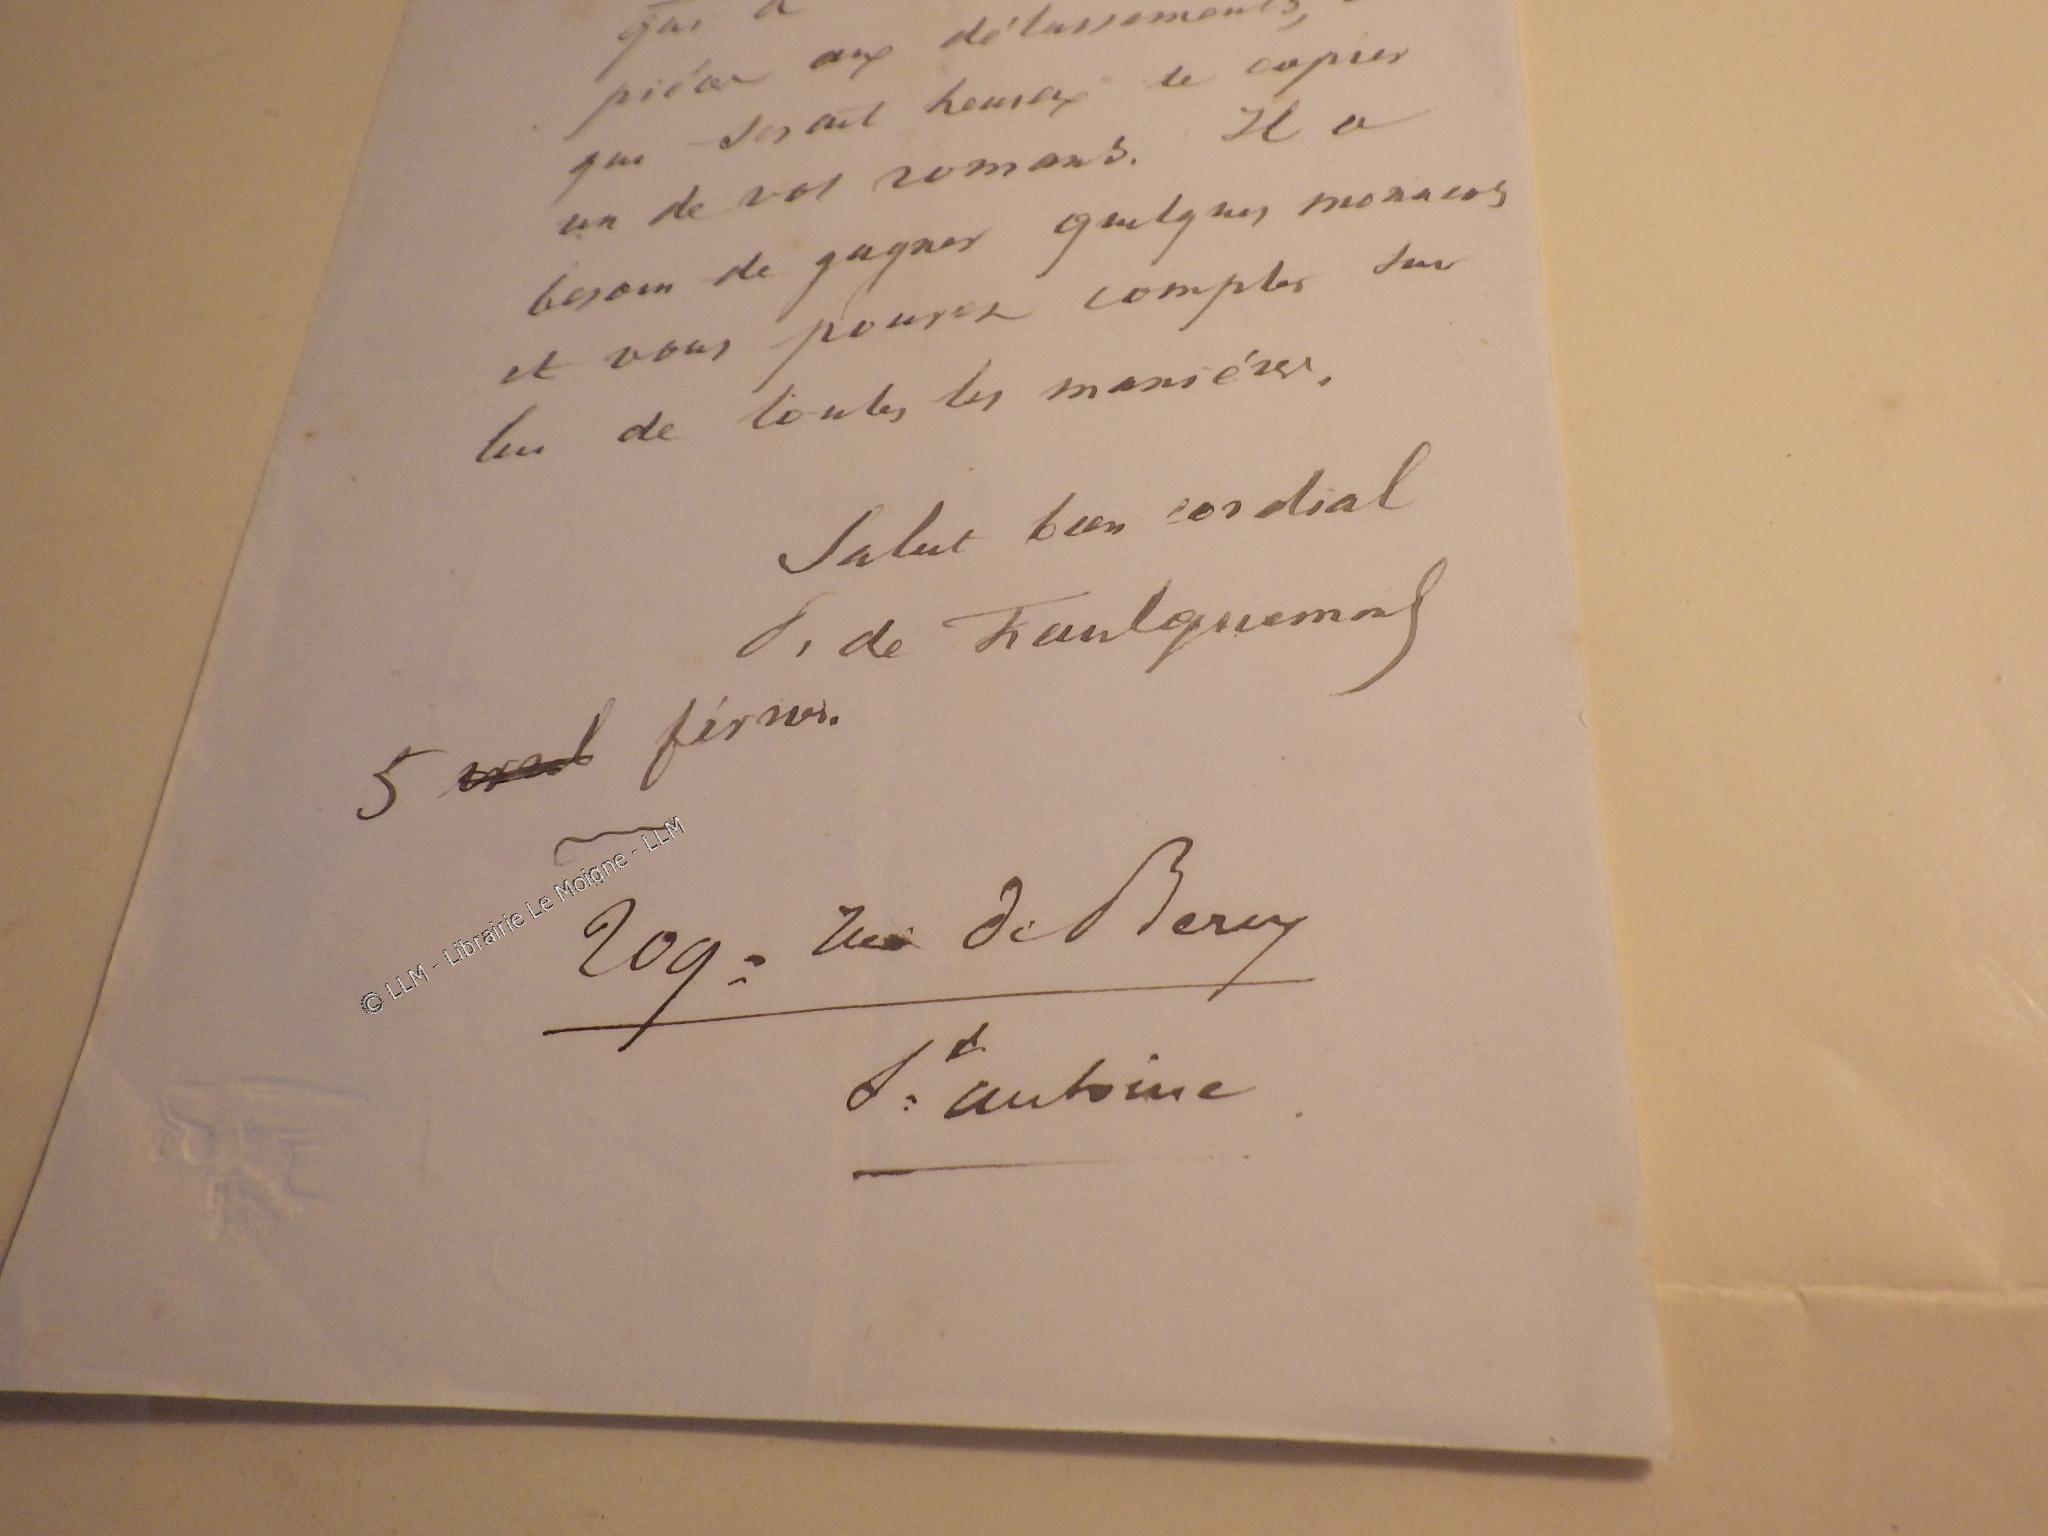 qui a
pièce aux délassements,
qui serait heureux de copier
un de vos romans. Il a
besoin de gagner quelques monacos
et vous pourez compter sur
lui de toutes les manières.
Salut bien cordial
P. de Faulquemont
5 février.
209 = rue de Bercy
St antoine
© LLM - Librairie Le Moigne - LLM